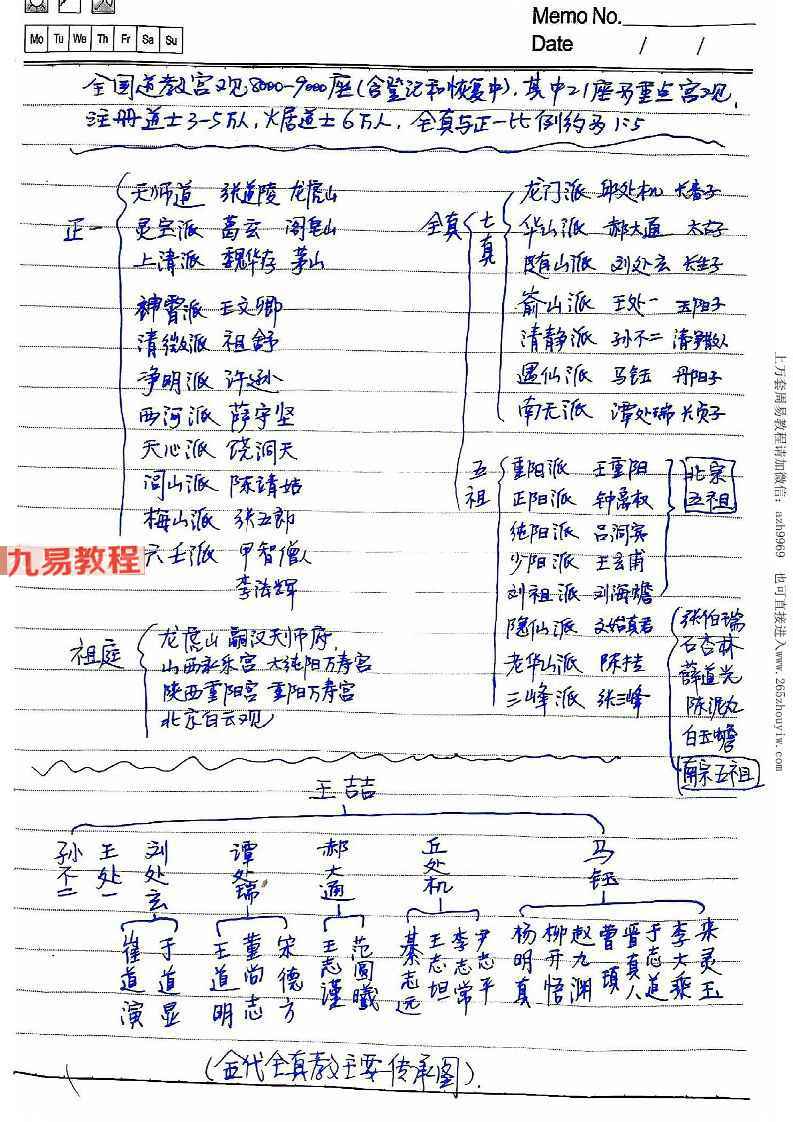 Memo No.
Mo Tu We Th Fr Sa Su
Date / /
全国道教宫观8000-9000座(含登记和恢复中),其中21座为重点宫观,
注册道士3-5万人,火居道士6万人,全真与正一比例约为1:5
正一
天师道 张道陵 龙虎山
灵宝派 葛玄 阁皂山
上清派 魏华存 茅山
神霄派 王文卿
清微派 祖舒
净明派 许逊
西河派 萨守坚
天心派 饶洞天
闾山派 陈靖姑
梅山派 张五郎
六壬派 甲智僧人
李法辉
全真
七真
龙门派 邱处机 长春子
华山派 郝大通 太古子
随山派 刘处玄 长生子
嵛山派 王处一 玉阳子
清静派 孙不二 清净散人
遇仙派 马钰 丹阳子
南无派 谭处瑞 长贞子
五祖
重阳派 王重阳
正阳派 钟离权
纯阳派 吕洞宾
少阳派 王玄甫
刘祖派 刘海蟾
北宗五祖
隐仙派 文始真君
老华山派 陈抟
三峰派 张三峰
张伯瑞
石杏林
薛道光
陈泥丸
白玉蟾
南宗五祖
祖庭
龙虎山 嗣汉天师府,
山西永乐宫 大纯阳万寿宫
陕西重阳宫 重阳万寿宫
北京白云观
王喆
孙不二 王处一 刘处玄 谭处瑞 郝大通 丘处机 马钰
崔道演 于道显 王道明 董尚志 宋德方 王志谨 范圆曦 綦志远 王志坦 李志常 尹志平 杨明真 柳开悟 赵九渊 曹瑱 晋真人 于志道 李大乘 来灵玉
(金代全真教主要传承图).
九易教程
上万套周易教程请加微信:azh9969 也可直接进入www.265zhouyiw.com